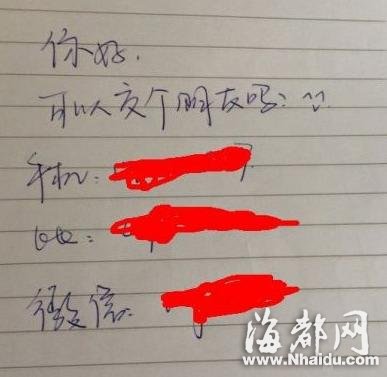 你好.
可以交个朋友吗:
手机:
QQ:
微信:
海都网
www.Nhaidu.com